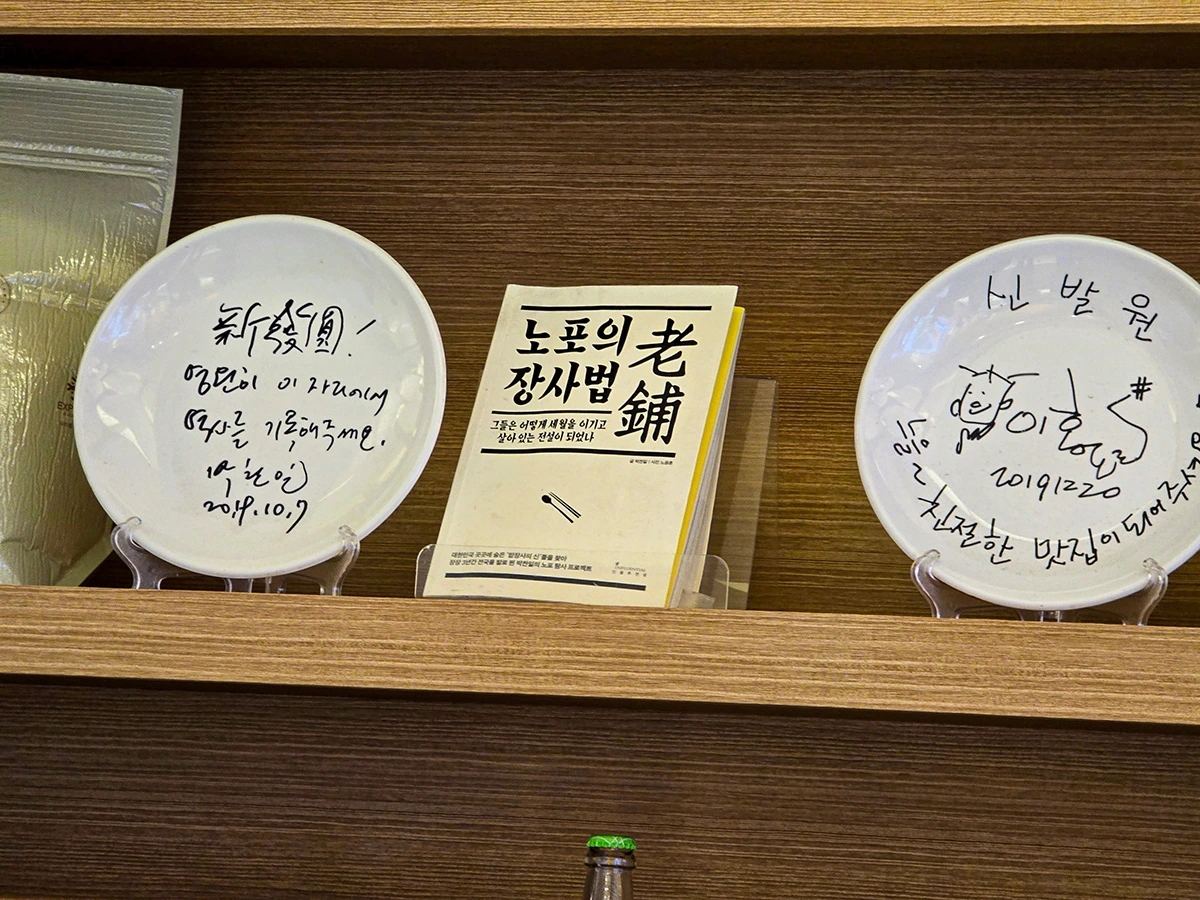 新發園!
영원히 이 자리에서
역사를 기록해주세요.
박찬일
2019.10.7
노포의
장사법
老鋪
그들은 어떻게 세월을 이기고
살아 있는 전설이 되었나
글 박찬일 | 사진 노중훈
대한민국 곳곳에 숨은 "밥장사의 신"들을 찾아
장장 3년간 전국을 발로 뛴 박찬일의 노포 탐사 프로젝트
INFLUENTIAL
인플루엔셜
신발원
20191220
늘 친절한 맛집이 되어주
EXP